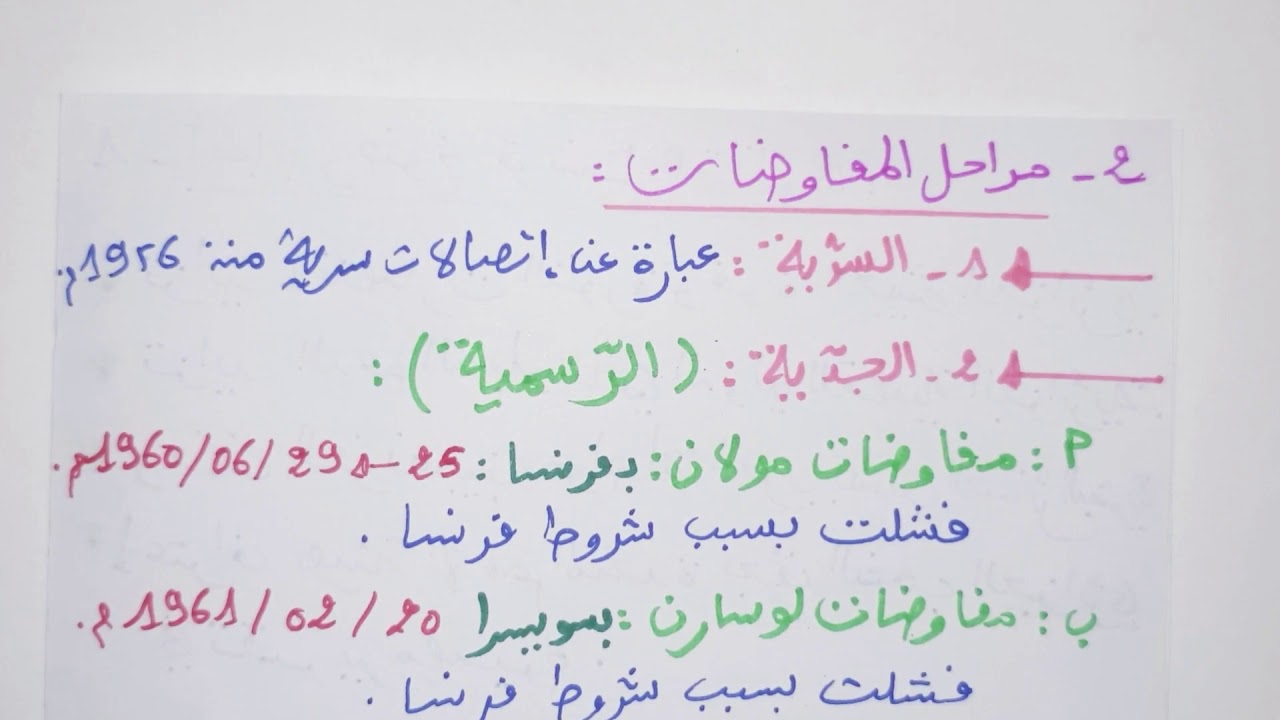 2- مراحل المفاوضات :
1- السّرّية : عبارة عن إتصالات سرية منذ 1956م.
2- الجدّية : (الرّسمية) :
أ : مفاوضات مولان : بفرنسا : 25-29/06/1960م.
فشلت بسبب شروط فرنسا .
ب : مفاوضات لوسارن : بسويسرا 20/02/1961م.
فشلت بسبب شروط فرنسا .